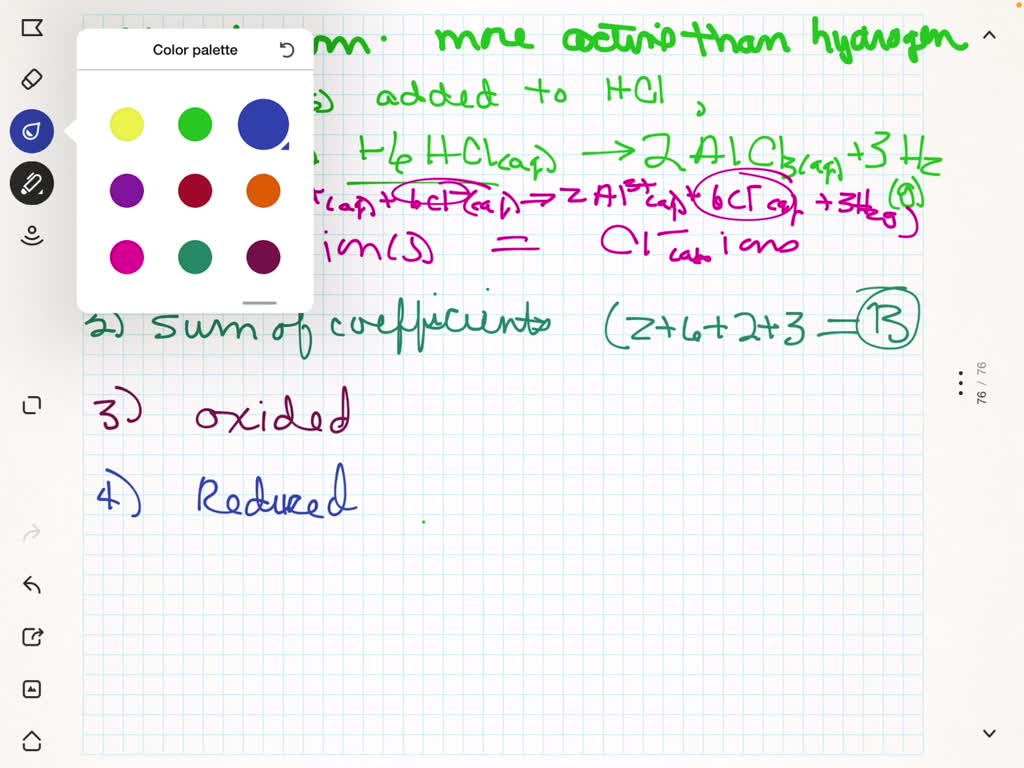 Color palette
m. more active than hydrogen
(s) added to HCl,
+6 HCl(aq) → 2 AlCl3(aq) + 3 H2 (g)
+(aq) + 6Cl-(aq) → 2 Al3+(aq) + 6Cl-(aq) + 3H2(g)
ion(s) = Cl-(aq) ions
2) sum of coefficients (2+6+2+3 = 13
3) oxided
4) Reduced
76 / 76